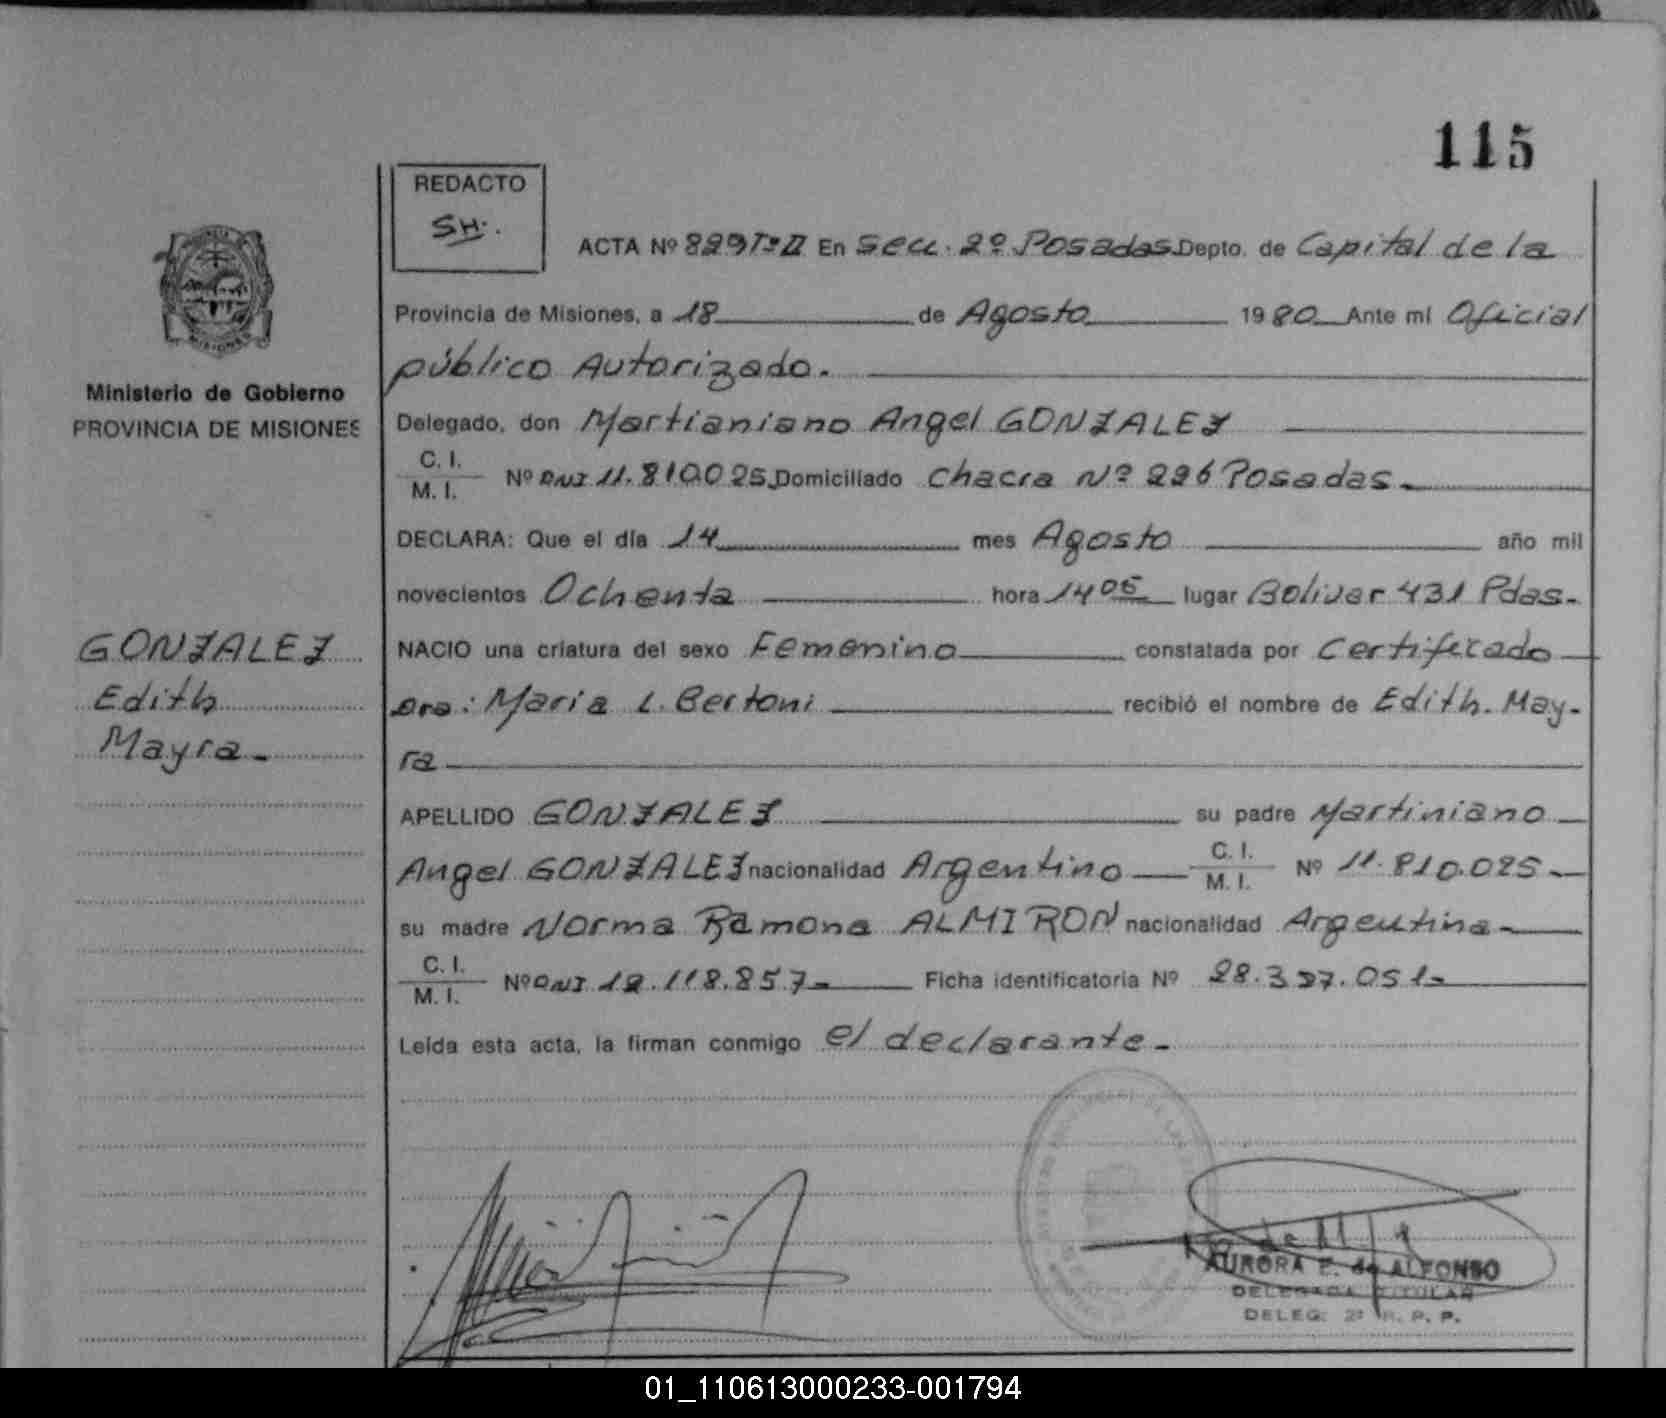 115
REDACTO
SH.
ACTA Nº 829 Tº II En Secc. 2º Posadas Depto. de Capital de la
Provincia de Misiones, a 18 de Agosto 1980 Ante mí Oficial
público Autorizado.
Ministerio de Gobierno
PROVINCIA DE MISIONES
Delegado, don Martianiano Angel GONZALEZ
C. I.
M. I. Nº DNI 11.810.025 Domiciliado Chacra Nº 226 Posadas.
DECLARA: Que el día 14 mes Agosto año mil
novecientos Ochenta hora 14 05 lugar Bolivar 431 Pdas.
GONZALEZ
Edith
Mayra.
NACIO una criatura del sexo Femenino constatada por Certificado
Dra: Maria L. Bertoni recibió el nombre de Edith May-
ra
APELLIDO GONZALEZ su padre Martiniano
Angel GONZALEZ nacionalidad Argentino C. I. M. I. Nº 11.810.025
su madre Norma Ramona ALMIRON nacionalidad Argentina
C. I.
M. I. Nº DNI 12.118.857 Ficha identificatoria Nº 28.397.051
Leída esta acta, la firman conmigo el declarante.
AURORA E. de ALFONSO
DELEGADA TITULAR
DELEG. 2ª R. P. P.
01_110613000233-001794